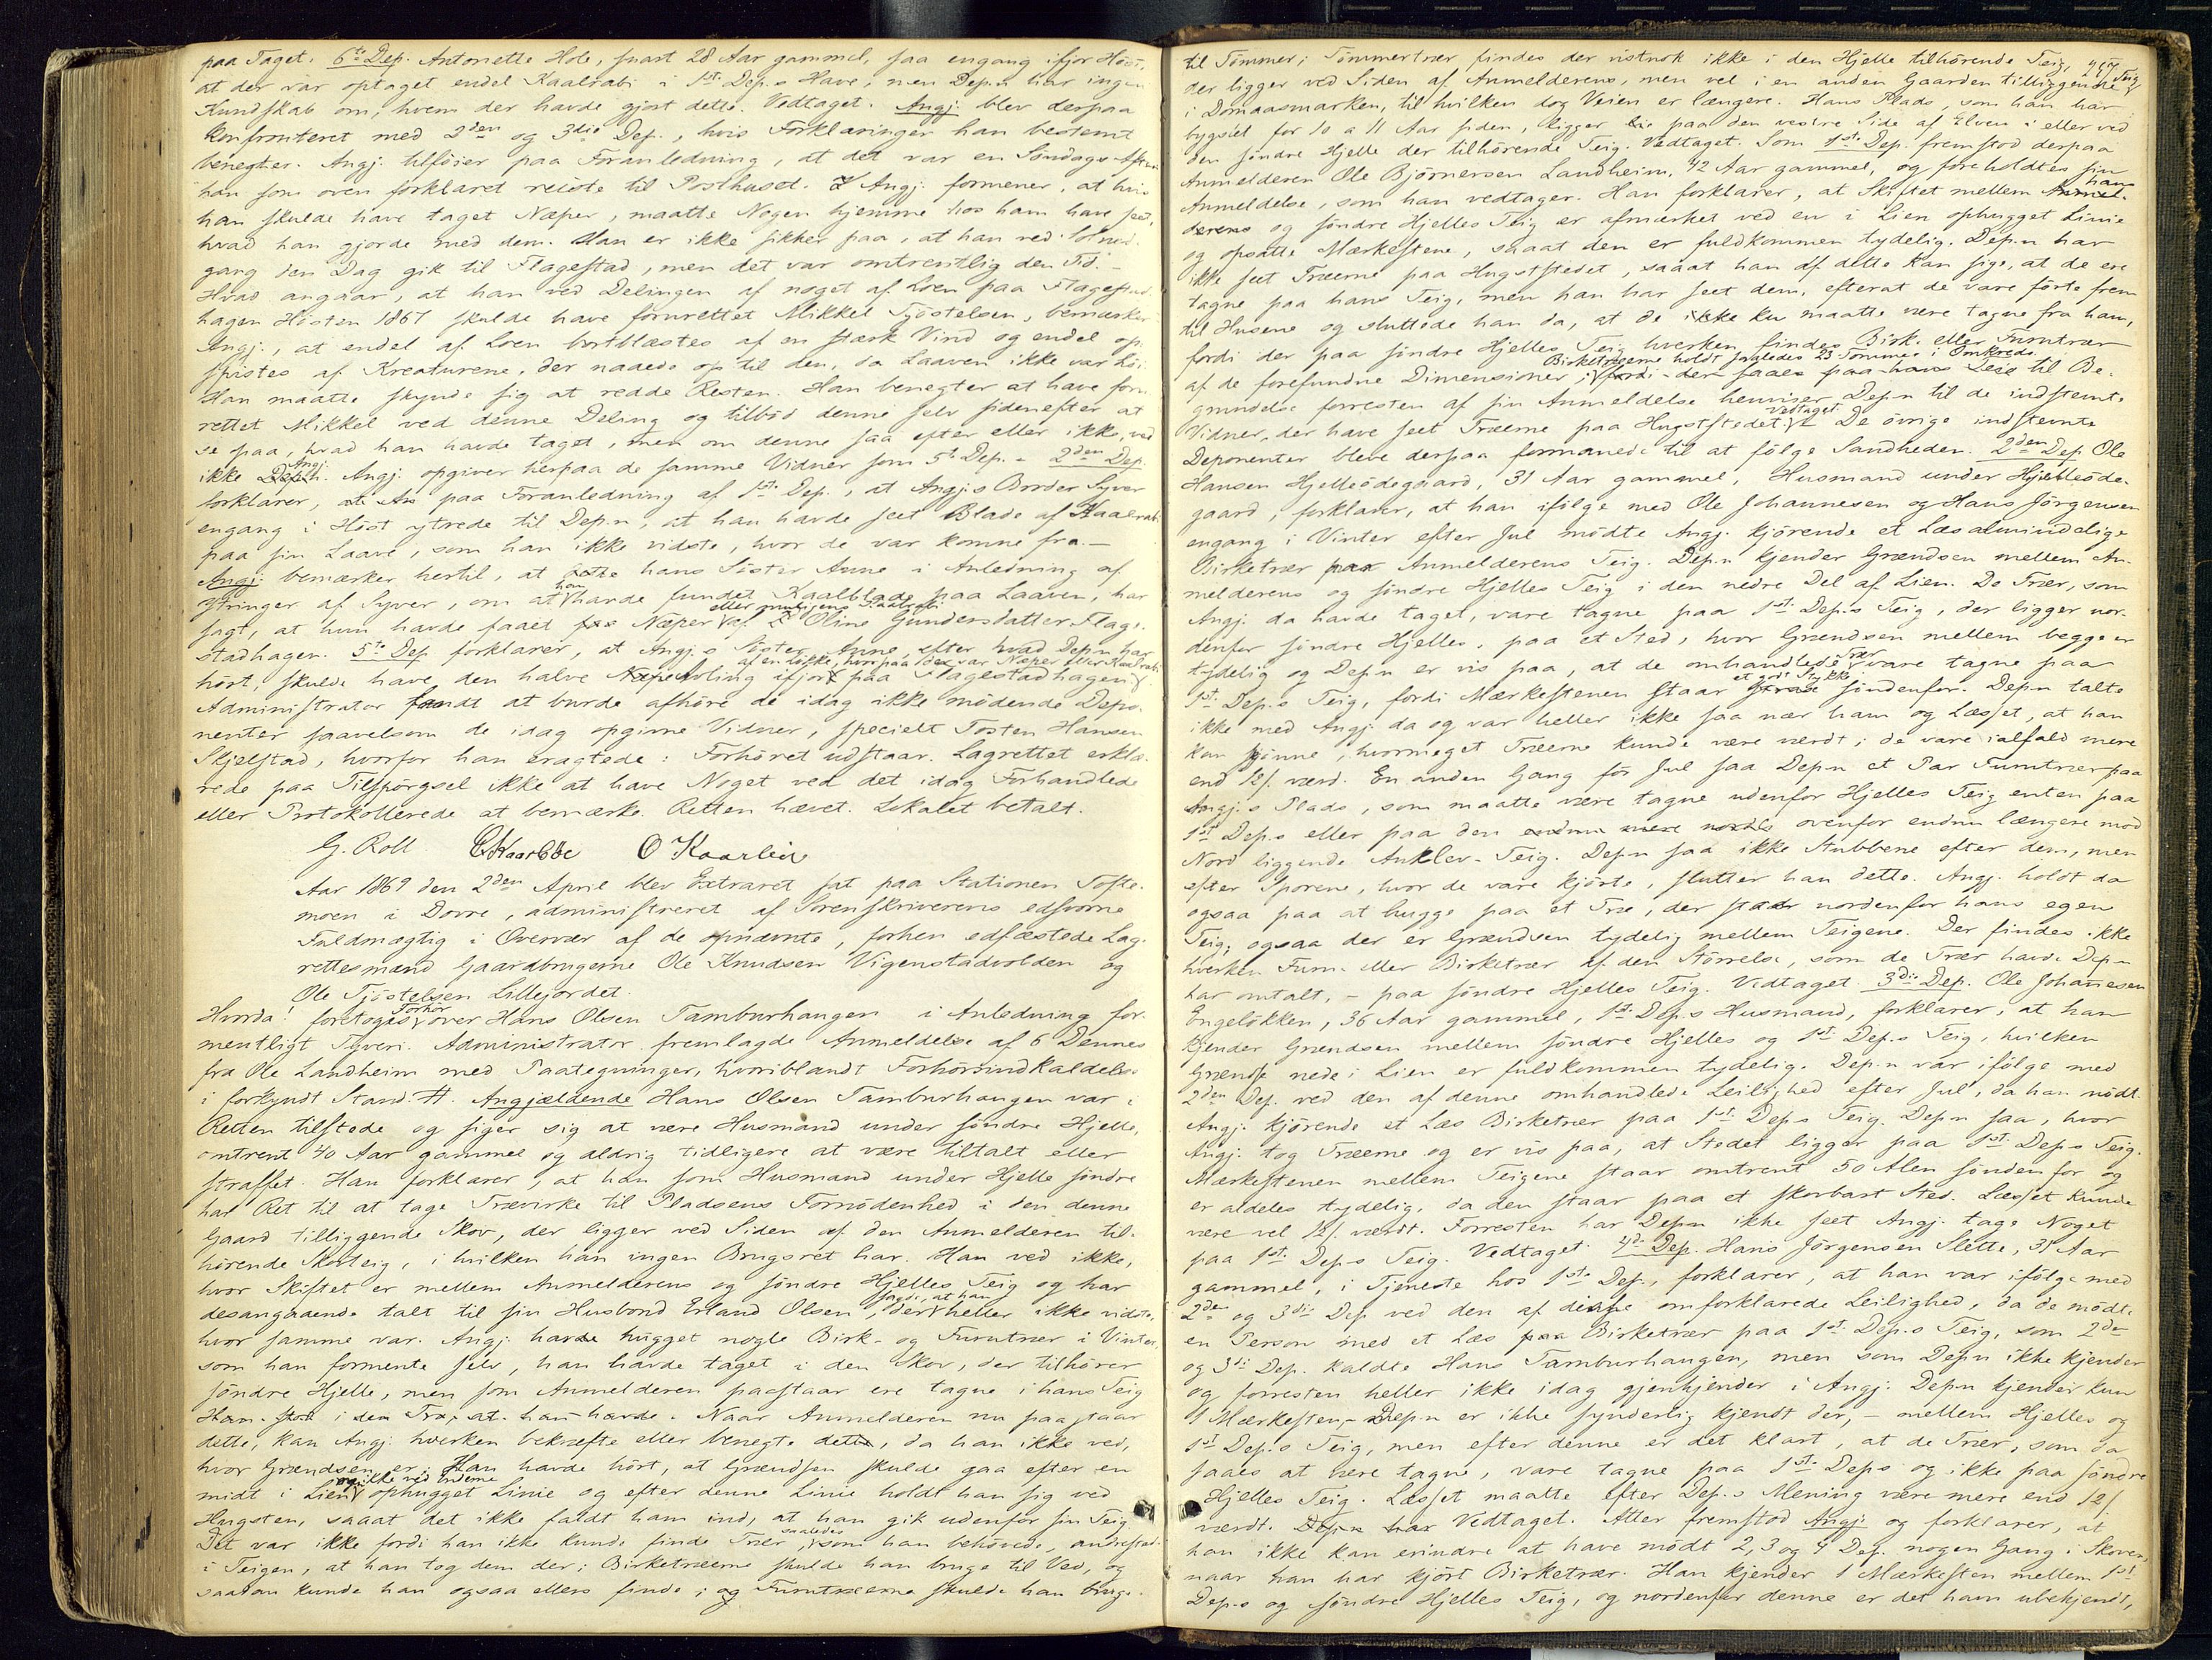 paa Taget. 6te Dep. Antonette Hole, snart 28 Aar gammel, saa engang ifjor Höst,
at der var optaget endel Kaalrabi i 1st. Dep.s Have, men Dep.n har ingen
Kundskab om, hvem der havde gjort dette. Vedtaget. Angj. blev derpaa
konfronteret med 2den og 3die Dep., hvis Forklaringer han bestemt
benegter. Angj. tilföier paa Foranledning, at det var en Söndags-Aften
han som oven forklaret reiste til Posthuset. Angj. formener, at hvis
han skulde have taget Næper, maatte Nogen hjemme hos ham have seet,
hvad han gjorde med dem. Han er ikke sikker paa, at han ved Solned-
gang den Dag gik til Flagestad, men det var omtrentlig den Tid.
Hvad angaar, at han ved Delingen af noget af Loen paa Flagestad-
hagen Hösten 1867 skulde have forurettet Mikkel Tjöstelsen, bemærker
Angj., at endel af Loen bortblæstes af en stærk Vind og endel op-
spistes af Kreaturene, der naaede op til den, da Laaven ikke var höi.
Han maatte skynde sig at redde Resten. Han benegter at have foru-
rettet Mikkel ved denne Deling og tilböd denne selv sidenefter at
se paa, hvad han havde taget, men om denne saa efter eller ikke, ved
ikke Dep.n. Angj. Angj. opgiver herpaa de samme Vidner som 5te Dep. - 2den Dep.
forklarer, at An paa Foranledning af 1st. Dep., at Angj.s Broder Syver
engang i Höst ytrede til Dep.n, at han havde seet Blade af Kaalrabi
paa sin Laave, som han ikke vidste, hvor de var komne fra.-
Angj. bemærker hertil, at hans Söster Anne i Anledning af
Ytringer af Syver, om at han havde fundet Kaalblade paa Laaven, har
sagt, at hun havde faaet Næper eller muligens Kaalrabi af Oline Gundersdatter Flage-
stadhagen. 5te Dep. forklarer, at Angj.s Söster Anne, efter hvad Dep.n har
hört, skulde have den halve Næpeavling ifjor paa Flagestadhagen af en Lökke, hvorpaa der var Næper eller Kaalrabi.
Administrator fandt at burde afhöre de idag ikke mödende Depo-
nenter saavelsom de idag opgivne Vidner, specielt Tosten Hansen
Skjelstad, hvorfor han eragtede: Forhöret udstaar. Lagrettet erklæ-
rede paa Tilspörgsel ikke at have Noget ved det idag Forhandlede
eller Protokollerede at bemærke. Retten hævet. Lokalet betalt.
G. Roll O Kaarlein
Aar 1869 den 2den April blev Extraret sat paa Stationen Tofte-
moen i Dovre, administreret af Sorenskriverens edsvorne
Fuldmægtig i Overvær af de opnævnte, forhen edfæstede Lag-
rettesmænd Gaardbrugerne Ole Knudsen Vigenstadvolden og
Ole Tjöstelsen Lillejordet.
Hvorda! foretoges Forhör over Hans Olsen Tamburhaugen i Anledning for-
mentligt Tyveri. Administrator fremlagde Anmeldelse af 6 Dennes
fra Ole Landheim med Paategninger, hvoriblandt Forhörsindkaldelse
i forkyndt Stand. #. Angjældende Hans Olsen Tamburhaugen var i
Retten tilstede og siger sig at være Husmand under söndre Hjelle,
omtrent 40 Aar gammel og aldrig tidligere at være tiltalt eller
straffet. Han forklarer, at han som Husmand under Hjelle söndre
har Ret til at tage Trævirke til Pladsens Fornödenhed i den denne
Gaard tilliggende Skov, der ligger ved Siden af den Anmelderen til-
hörende Skovteig, i hvilken han ingen Brugsret har. Han ved ikke,
hvor Skiftet er mellem Anmelderens og söndre Hjelles Teig og har
desangaaende talt til sin Husbond Erland Olsen, der sagde, at han heller ikke vidste,
hvor samme var. Angj. havde hugget nogle Birk- og Furutrær i Vinter,
som han formente selv, han havde taget i den Skov, der tilhörer
söndre Hjelle, men som Anmelderen paastaar ere tagne i hans Teig
Han stod i den Tro, at han havde. Naar Anmelderen nu paastaar
dette, kan Angj. hverken bekræfte eller benegte dette, da han ikke ved,
hvor Grændsen er. Han havde hört, at Grændsen skulde gaa efter en
midt i Lien og ikke ved Enderne ophugget Linie og efter denne Linie holdt han sig ved
Hugsten, saaat det ikke faldt ham ind, at han gik udenfor sin Teig.
Det var ikke fordi han ikke kunde finde Trær, saaledes som han behövede, andetsted
i Teigen, at han tog dem der; Birketræerne skulde han bruge til Ved, og
saadan kunde han ogsaa ellers finde; og Furutræerne skulde han bruge
til Tömmer; Tömmertrær findes der vistnok ikke i den Hjelle tilhörende Teig,
der ligger ved Siden af Anmelderens, men vel i en anden Gaarden tilliggende Teig
i Domaasmarken, til hvilken dog Veien er længere. Hans Plads, som han har
bygslet for 10 a 11 Aar siden, ligger paa den vestre Side af Elven i eller ved
den söndre Hjelle der tilhörende Teig. Vedtaget. Som 1st. Dep. fremstod derpaa
Anmelderen Ole Björnersen Landheim, 42 Aar gammel, og foreholdtes sin
Anmeldelse, som han vedtager. Han forklarer, at Skiftet mellem hans Anmel-
derens og söndre Hjelles Teig er afmærket ved en i Lien ophugget Linie
og opsatte Mærkestene, saaat den er fuldkommen tydelig. Dep.n har
ikke seet Træerne paa Hugststedet, saaat han af dette kan sige, at de ere
tagne paa hans Teig, men han har seet dem, efterat de vare förte frem
til Husene og sluttede han da, at de maatte være tagne fra ham,
fordi der paa söndre Hjelles Teig hverken findes Birk- eller Furutrær
af de forefundne Dimensioner; Birketræerne holdt saaledes 23 Tommer i Omkreds. fordi der saaes paa hans Leie til Be-
grundelse forresten af sin Anmeldelse henviser Dep.n til de indstevnte
Vidner, der have seet Træerne paa Hugststedet. Vedtaget. De övrige indstevnte
Deponenter bleve derpaa formanede til at fölge Sandheden. 2den Dep. Ole
Hansen Hjelleödegaard, 31 Aar gammel, Husmand under Hjelleöde-
gaard, forklarer, at han ifölge med Ole Johannesen og Hans Jörgensen
engang i Vinter efter Jul mödte Angj. kjörende et Læs almindelige
Birketrær paa Anmelderens Teig. Dep.n kjender Grændsen mellem An-
melderens og söndre Hjelles Teig i den nedre Del af Lien. De Trær, som
Angj. da havde taget, vare tagne paa 1st. Dep.s Teig, der ligger nor-
denfor söndre Hjelles, paa et Sted, hvor Grændsen mellem begge er
tydelig og Dep.n er vis paa, at de omhandlede Trær vare tagne paa
1st. Dep.s Teig, fordi Mærkestenen staar et godt Stykke söndenfor. Dep.n talte
ikke med Angj. da og var heller ikke saa nær ham og Læsset, at han
kan skjönne, hvormeget Træerne kunde være værdt; de vare ialfald mere
end 12/ værd. En anden Gang för Jul saa Dep.n et Par Furutrær paa
Angj.s Plads, som maatte være tagne udenfor Hjelles Teig enten paa
1st. Dep.s eller paa den endnu mere nordlig ovenfor endnu længere mod
Nord liggende Anklev-Teig. Dep.n saa ikke Stubbene efter dem, men
efter Sporene, hvor de vare kjörte, slutter han dette. Angj. holdt da
ogsaa paa at hugge paa et Træ, der staar nordenfor hans egen
Teig; ogsaa der er Grændsen tydelig mellem Teigene. Der findes ikke
hverken Furu- eller Birketrær af den Störrelse, som de Trær havde Dep.n
har omtalt, - paa söndre Hjelles Teig. Vedtaget. 3die Dep. Ole Johannesen
Engelökken, 36 Aar gammel, 1st. Dep.s Husmand, forklarer, at han
kjender Grændsen mellem söndre Hjelles og 1st. Dep.s Teig, hvilken
Grændse nede i Lien er fuldkommen tydelig. Dep.n var ifölge med
2den Dep. ved den af denne omhandlede Leilighed efter Jul, da han mödte
Angj. kjörende et Læs Birketrær paa 1st. Dep.s Teig. Dep.n saa, hvor
Angj. tog Træerne og er vis paa, at Stedet ligger paa 1st. Dep.s Teig.
Mærkestenen mellem Teigene staar omtrent 50 Alen söndenfor og
er aldeles tydelig, da den staar paa et skorbart Sted. Læsset kunde
være vel 12/ værdt. Forresten har Dep.n ikke seet Angj. tage Noget
paa 1st. Dep.s Teig. Vedtaget. 4d. Dep. Hans Jörgensen Slette, 31 Aar
gammel, i Tjeneste hos 1ste Dep., forklarer, at han var ifölge med
2den og 3die Dep. ved den af disse omforklarede Leilighed, da de mödte
en Person med et Læs paa Birketrær paa 1st. Dep.s Teig, som 2den
og 3die Dep. kaldte Hans Tamburhaugen, men som Dep.n ikke kjender
og forresten heller ikke idag gjenkjender i Angj. Dep.n kjender kun
1 Mærkesten, - Dep.n er ikke synderlig kjendt der, - mellem Hjelles og
1st. Dep.s Teig, men efter denne er det klart, at de Trær, som da
saaes at være tagne, vare tagne paa 1st. Dep.s og ikke paa söndre
Hjelles Teig. Læsset maatte efter Dep.s Mening være mere end 12/
værdt. Dep.n har Vedtaget. Atter fremstod Angj. og forklarer, at
han ikke kan erindre at have mödt 2, 3 og 4 Dep. nogen Gang i Skoven,
naar han har kjört Birketrær. Han kjender 1 Mærkesten mellem 1st.
Dep.s og söndre Hjelles Teig, og nordenfor denne er det ham ubekjendt,